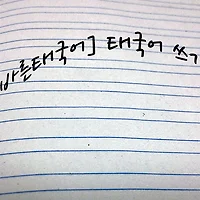 바른태국어] 태국어 쓰기